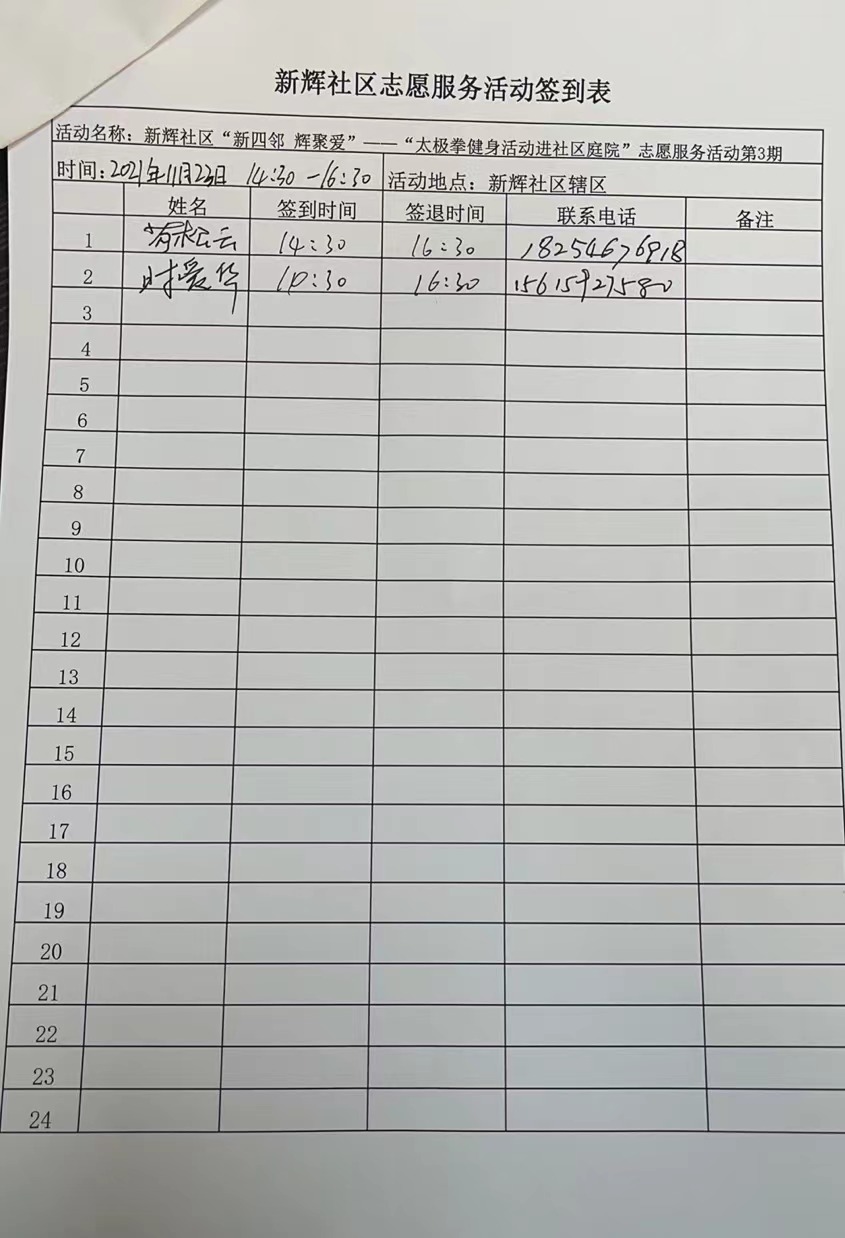 新辉社区志愿服务活动签到表
活动名称：新辉社区“新四邻 辉聚爱”——“太极拳健身活动进社区庭院”志愿服务活动第3期
时间：2021年11月23日 14:30-16:30 活动地点：新辉社区辖区
姓名 签到时间 签退时间 联系电话 备注
1 14:30 16:30 18254676918
2 时爱华 16:30 15615927580
3
4
5
6
7
8
9
10
11
12
13
14
15
16
17
18
19
20
21
22
23
24